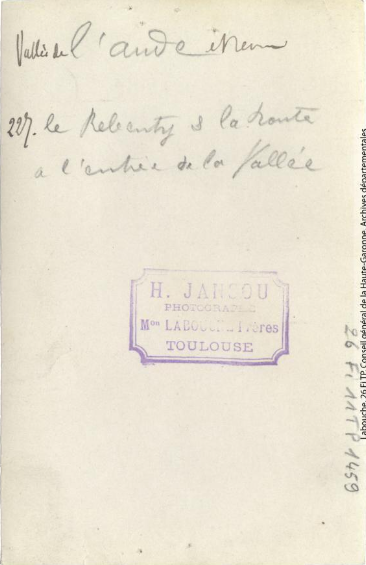 Vallée de l'aude
227. le Rebenty & la Route
a l'entrée de la Vallée
H. JANSOU
PHOTOGRAPHE
Mon LABOUCHE Frères
TOULOUSE
26 Fi 11 TP 1459
Labouche, 26 Fi TP, Conseil général de la Haute-Garonne, Archives départementales